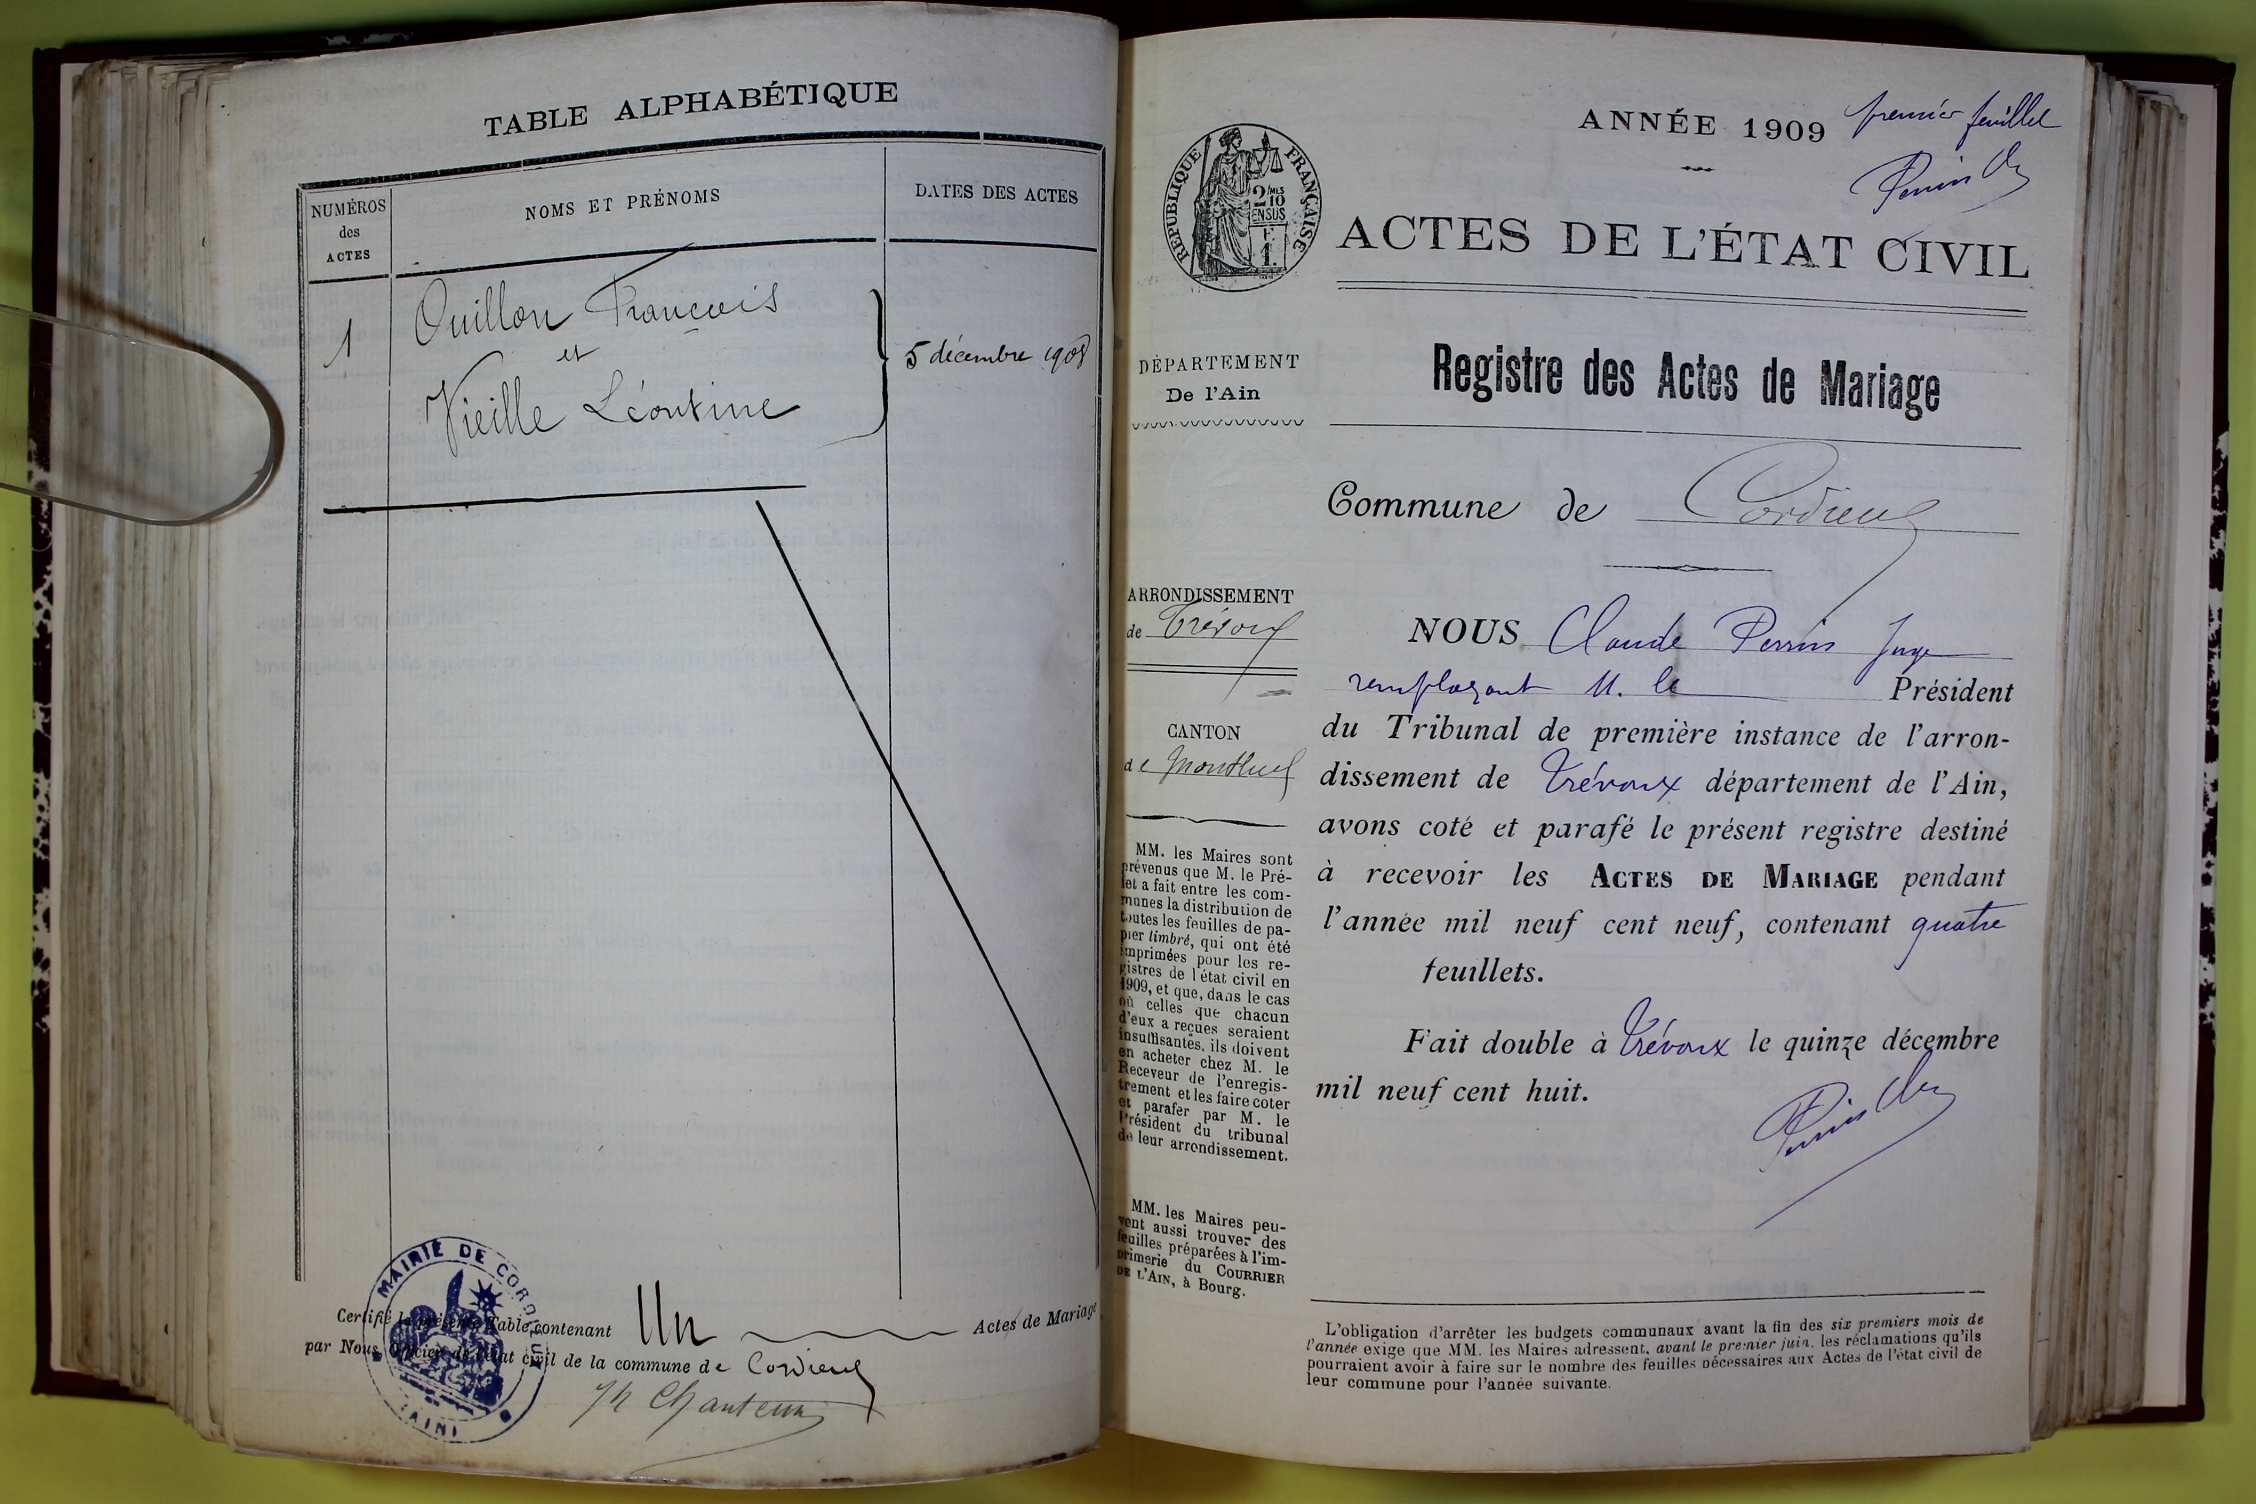 TABLE ALPHABÉTIQUE
NUMÉROS
des
ACTES
NOMS ET PRÉNOMS
DATES DES ACTES
1
Ouillon François
et
Vieille Léontine
5 décembre 1908
Certifié la présente Table contenant Un Actes de Mariage
par Nous Officier de l'état civil de la commune de Cordieux
MAIRIE DE CORDIEUX
(AIN)
ANNÉE 1909
premier feuillet
Perrin
RÉPUBLIQUE FRANÇAISE
2/10 MES
EN SUS
F.
1.
ACTES DE L'ÉTAT CIVIL
DÉPARTEMENT
De l'Ain
Registre des Actes de Mariage
Commune de Cordieux
ARRONDISSEMENT
de Trévoux
CANTON
de Montluel
MM. les Maires sont
prévenus que M. le Pré-
fet a fait entre les com-
munes la distribution de
toutes les feuilles de pa-
pier timbré, qui ont été
imprimées pour les re-
gistres de l'état civil en
1909, et que, dans le cas
où celles que chacun
d'eux a reçues seraient
insuffisantes, ils doivent
en acheter chez M. le
Receveur de l'enregis-
trement et les faire coter
et parafer par M. le
Président du tribunal
de leur arrondissement.
MM. les Maires peu-
vent aussi trouver des
feuilles préparées à l'im-
primerie du COURRIER
DE L'AIN, à Bourg.
NOUS Claude Perrin Juge
remplaçant M. le Président
du Tribunal de première instance de l'arron-
dissement de Trévoux département de l'Ain,
avons coté et parafé le présent registre destiné
à recevoir les ACTES DE MARIAGE pendant
l'année mil neuf cent neuf, contenant quatre
feuillets.
Fait double à Trévoux le quinze décembre
mil neuf cent huit.
Perrin
L'obligation d'arrêter les budgets communaux avant la fin des six premiers mois de
l'année exige que MM. les Maires adressent, avant le premier juin, les réclamations qu'ils
pourraient avoir à faire sur le nombre des feuilles nécessaires aux Actes de l'état civil de
leur commune pour l'année suivante.